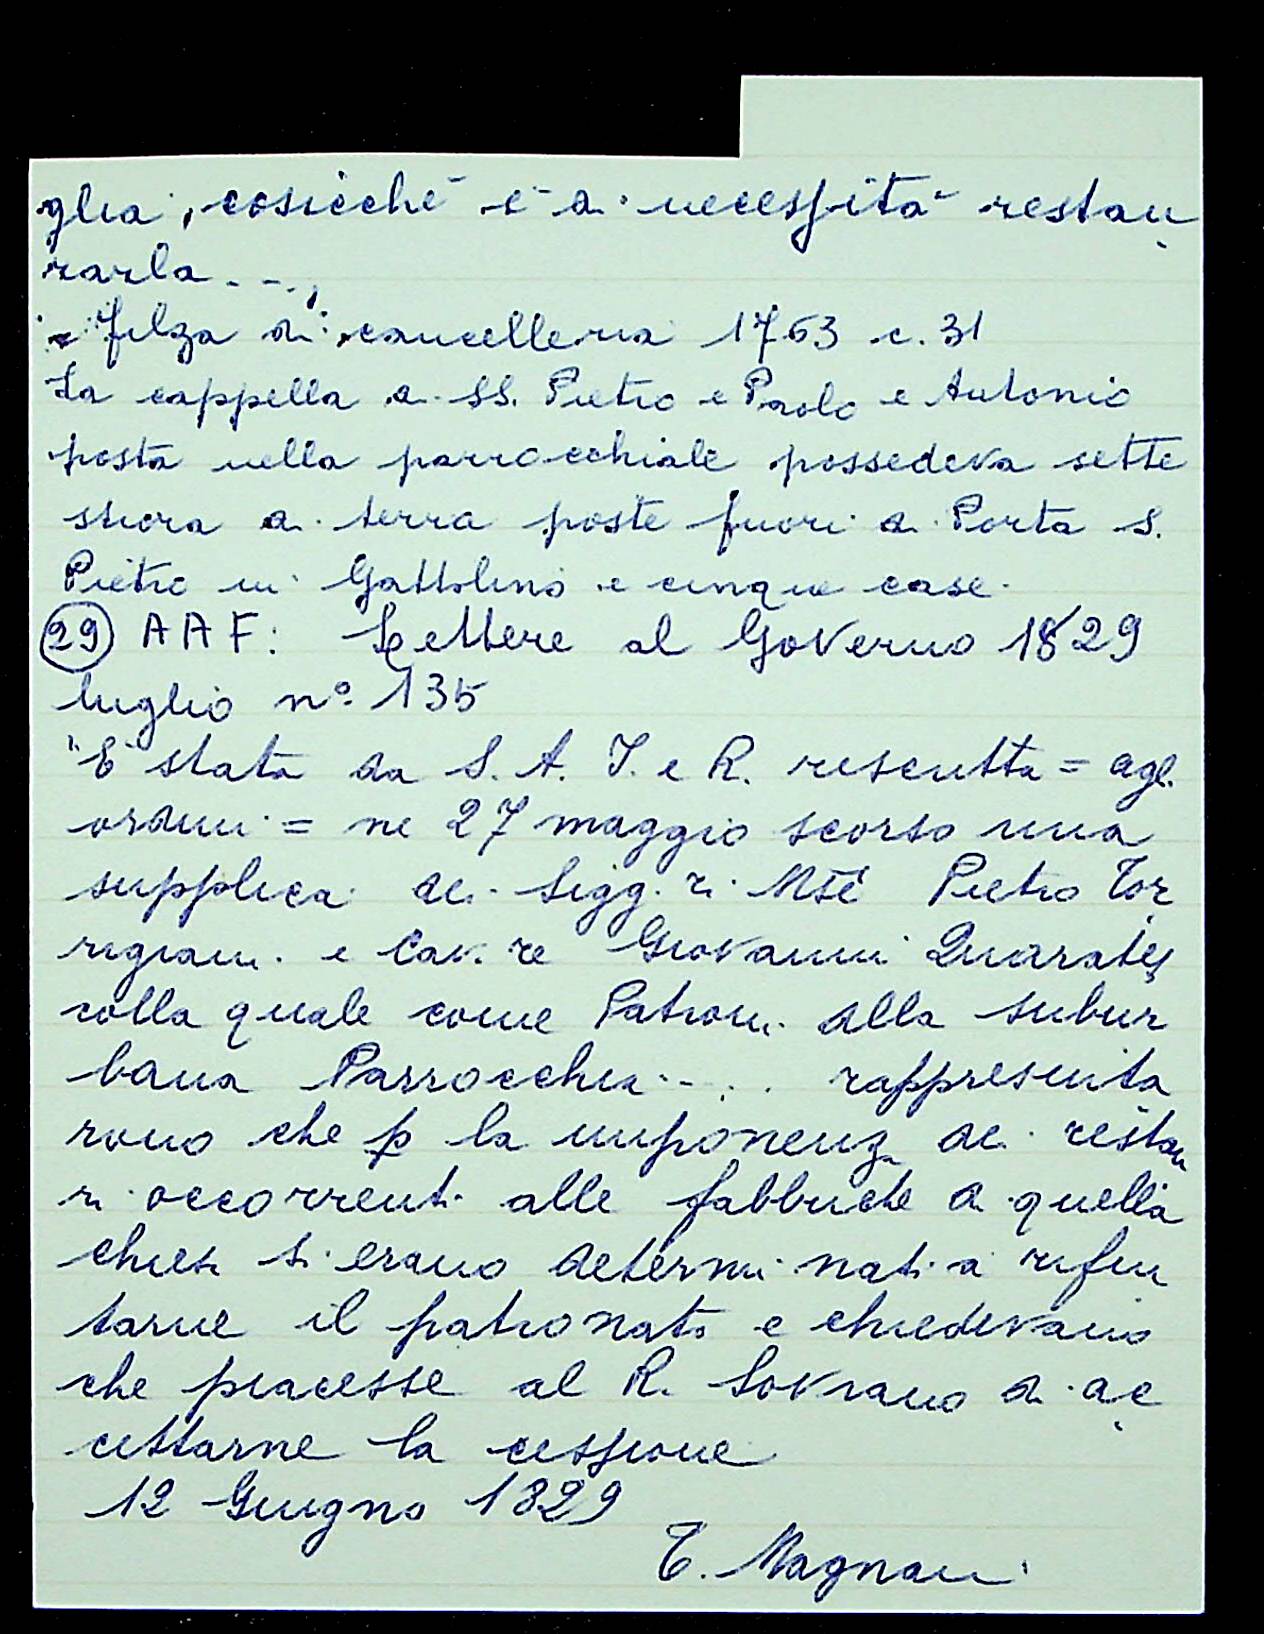 glia, cosicchè è di necessità restau
rarla...,
= filza di cancelleria 1763 c. 31
La cappella di SS. Pietro e Paolo e Antonio
posta nella parrocchiale possedeva sette
stiora di terra poste fuori di Porta S.
Pietro in Gattolino e cinque case.
29 AAF: Lettere al Governo 1829
luglio n° 135
"E' stata da S. A. I. e R. rescritta = agl.
ordini = ne 27 maggio scorso una
supplica dei Sigg.ri Mse Pietro Tor
rigiani e Cav.re Giovanni Quarates
colla quale come Patroni della subur
bana Parrocchia .... rappresenta
rono che p la imponenza dei restau
ri occorrenti alle fabbriche di quella
chiesa si erano determinati a rifiu
tarne il patronato e chiedevano
che piacesse al R. Sovrano di ac
cettarne la cessione
12 Giugno 1829
T. Magnani